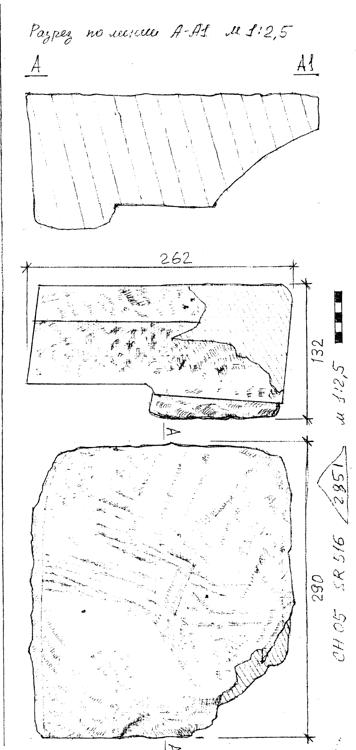 Разрез по линии А-А1 М 1:2,5
А А1
262
132
м 1:2,5
А
290
CH 05 SR 516 2951
А